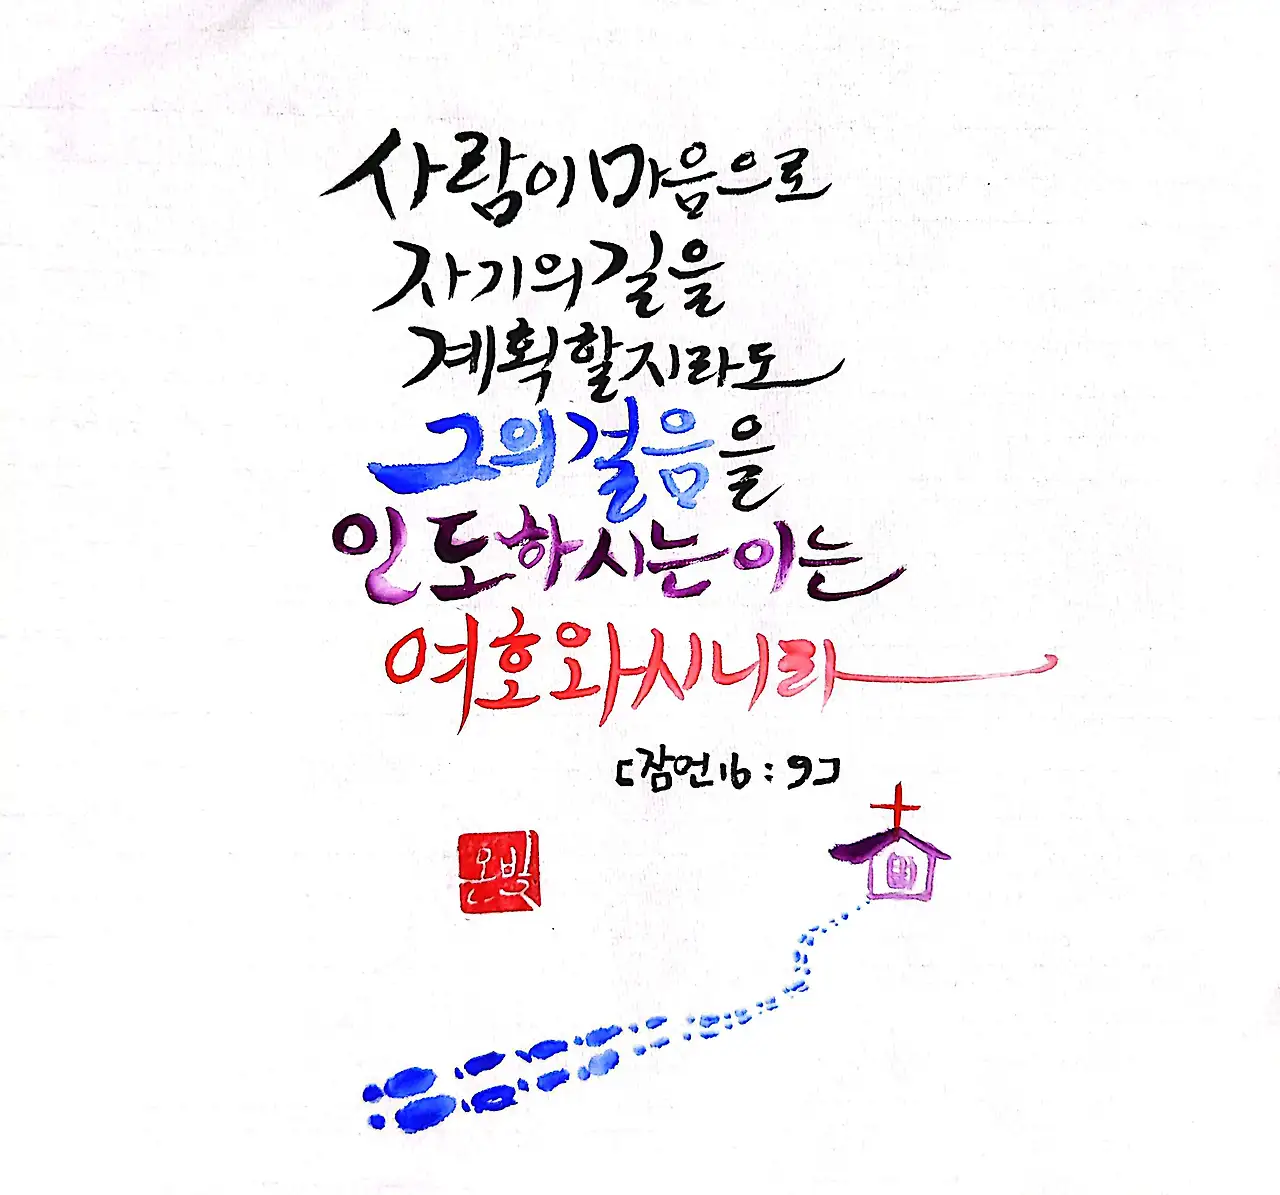 사람이 마음으로
자기의 길을
계획할지라도
그의 걸음을
인도하시는 이는
여호와시니라
[잠언 16 : 9]
온빛